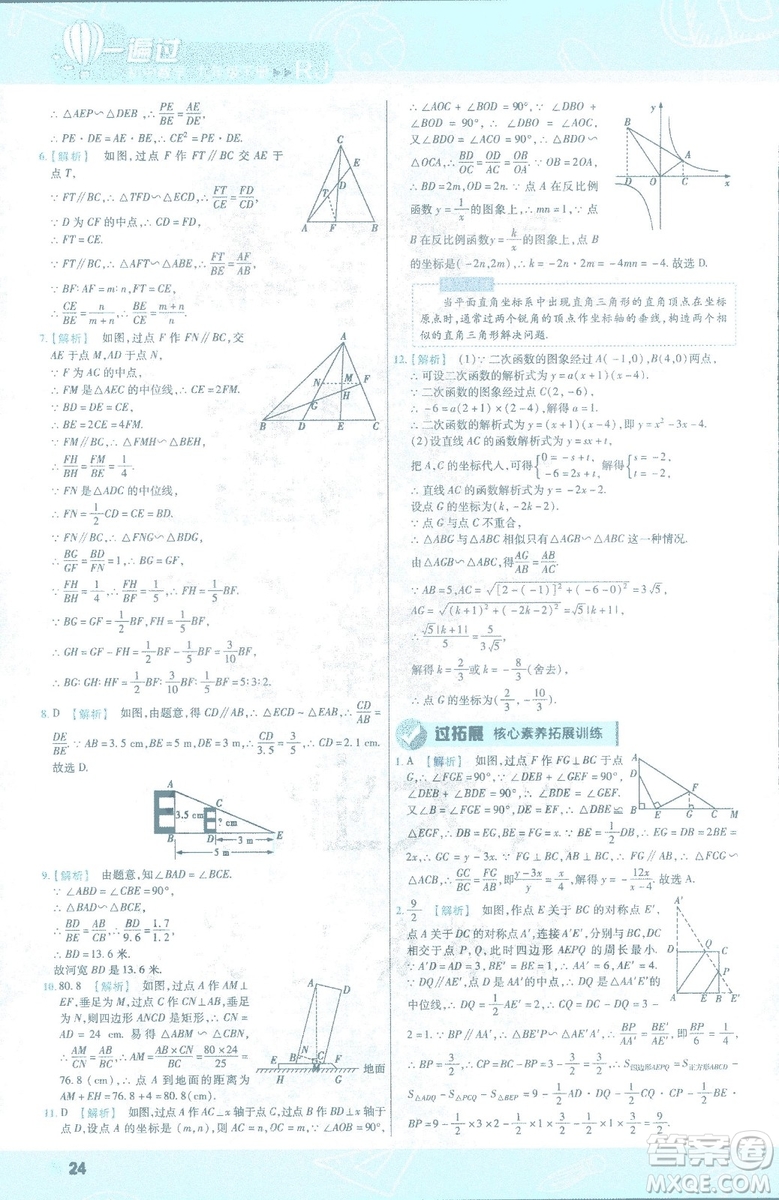 一遍过
RJ
∴ △AEP∽△DEB, ∴ PE/BE = AE/DE,
∴ PE·DE=AE·BE, ∴ CE²=PE·DE.
6.【解析】 如图,过点 F 作 FT∥BC 交 AE 于
点 T,
∵ FT∥BC, ∴ △TFD∽△ECD, ∴ FT/CE = FD/CD.
∵ D 为 CF 的中点, ∴ CD=FD,
∴ FT=CE.
∵ FT∥BC, ∴ △AFT∽△ABE, ∴ FT/BE = AF/AB.
∵ BF:AF=m:n, ∴ AF/AB = n/(m+n),
∴ CE/BE = n/(m+n), ∴ BE/CE = (m+n)/n.
7.【解析】 如图,过点 F 作 FM∥BC,交
AE 于点 M,交 AD 于点 N.
∵ F 为 AC 的中点,
∴ FM 是 △AEC 的中位线,
∴ FM = 1/2 CE.
∵ BD=DE=CE, ∴ BE=4FM.
∵ FM∥BC, ∴ △FMH∽△BEH,
∴ FH/BH = FM/BE = 1/4.
∵ FN 是 △ADC 的中位线,
∴ FN = 1/2 CD=CE=BD.
∵ FN∥BC, ∴ △FNG∽△BDG,
∴ BG/GF = BD/FN =1, ∴ BG=GF,
∵ FH/BH = 1/4, ∴ FH/BF = 1/5, ∴ FH = 1/5 BF.
∵ BG=GF, ∴ BG=GF = 1/2 BF,
∴ GH=GF−FH = 1/2 BF − 1/5 BF = 3/10 BF,
∴ BG:GH:HF = 1/2 BF: 3/10 BF: 1/5 BF=5:3:2.
8. D 【解析】 如图,由题意,得 CD∥AB, ∴ △ECD∽△EAB, ∴ CD/AB =
DE/BE. ∵ AB=3.5 cm,BE=5 m,DE=3 m, ∴ CD/3.5 = 3/5, ∴ CD=2.1 cm.
故选 D.
A
3.5 cm
C
? cm
B D E
3 m
5 m
9.【解析】 由题意,知∠BAD=∠BCE.
∵ ∠ABD=∠CBE=90°,
∴ △BAD∽△BCE,
∴ BD/BE = AB/BC, ∴ BD/9.6 = 1.7/1.2,
∴ BD=13.6.
故河宽 BD 是 13.6 米.
10. 80.8 【解析】 如图,过点 A 作 AM⊥
EF,垂足为 M,过点 C 作 CN⊥AM,垂足
为 N,则四边形 ANCD 是矩形, ∴ CN=
AD = 24 cm. 易得 △ABM∽△CBN,
∴ AM/CN = AB/CB, ∴ AM = AB×CN/CB = 80×24/25 =
76.8 (cm). ∴ 点 A 到地面的距离为
AM+EH=76.8+4=80.8(cm).
地面
11. D 【解析】 过点 A 作 AC⊥x 轴于点 C,过点 B 作 BD⊥x 轴于点 D,
如图,设点 A 的坐标是 (m,n),则 AC=n,OC=m. ∵ ∠AOB=90°,
∴ ∠AOC + ∠BOD = 90°, ∵ ∠DBO +
∠BOD = 90°, ∴ ∠DBO = ∠AOC.
又 ∵ ∠BDO=∠ACO=90°, ∴ △BDO∽
△OCA, ∴ BD/OC = OD/AC = OB/OA. ∵ OB=2OA,
∴ BD=2m,OD=2n. ∵ 点 A 在反比例
函数 y = 1/x 的图象上, ∴ mn=1, ∵ 点 B
在反比例函数 y = k/x 的图象上,点 B
的坐标是(−2n,2m), ∴ k=−2n·2m=−4mn=−4. 故选 D.
当平面直角坐标系中出现直角三角形的直角顶点在坐标
原点时,通常过两个锐角的顶点作坐标轴的垂线,构造两个相
似的直角三角形解决问题.
12.【解析】 (1)∵ 二次函数的图象经过 A(−1,0),B(4,0)两点,
∴ 可设二次函数的解析式为 y=a(x+1)(x−4).
∵ 二次函数的图象经过点 C(2,−6),
∴ −6=a(2+1)×(2−4),解得 a=1.
∴ 二次函数的解析式为 y=(x+1)(x−4),即 y=x²−3x−4.
(2)设直线 AC 的函数解析式为 y=sx+t,
把 A,C 的坐标代入,可得{0=−s+t, −6=2s+t, 解得{s=−2, t=−2.
∴ 直线 AC 的函数解析式为 y=−2x−2.
设点 G 的坐标为(k,−2k−2).
∵ 点 G 与点 C 不重合,
∴ △ABG 与 △ABC 相似只有 △AGB∽△ABC 这一种情况.
由 △AGB∽△ABC,得 AG/AB = AB/AC.
∵ AB=5,AC=√([2−(−1)]²+(−6−0)²) =3√5,
AG=√((k+1)²+(−2k−2)²) =√5|k+1|,
∴ √5|k+1|/5 = 5/(3√5),
解得 k = 2/3 或 k = −8/3 (舍去),
∴ 点 G 的坐标为(2/3, −10/3).
过拓展 核心素养拓展训练
1. A 【解析】 如图,过点 F 作 FG⊥BC 于点
G, ∴ ∠FGE=90°, ∴ ∠DEB+∠FEG=90°.
又 ∵ ∠B=90°, ∴ ∠DEB+∠BDE=90°,
∴ ∠BDE=∠FEG,DE=EF, ∴ △DBE≌
△EGF, ∴ EG=DB,BE=FG=x. ∵ BE=2DB, ∴ EG=DB = 1/2 BE =
1/2 x. ∴ GC=y−3x. ∵ FG⊥BC,AB⊥BC, ∴ FG∥AB, ∴ △FGC∽
△ABC, ∴ GC/BC = FG/AB,
2. 9/2 【解析】 如图,作点 E 关于 BC 的对称点 E′,
点 A 关于 DC 的对称点 A′,连接 A′E′,分别与 BC,
DC 相交于点 P,Q,此时四边形 AEPQ 的周长最小.
∵ A′D=AD=3,BE′=BE=1, ∴ AA′=6,AE′=4.
∵ DQ∥AE′,D 是 AA′的中点, ∴ DQ 是 △AA′E′的
中位线, ∴ DQ = 1/2 AE′=2, ∴ CQ=DC−DQ=3−
2=1. ∵ BP∥AA′, ∴ △BE′P∽△AE′A′, ∴ BP/AA′ = BE′/AE′, 即 BP/6 = 1/4,
∴ BP = 3/2, ∴ CP=BC−BP=3 − 3/2 = 3/2, ∴ S四边形AEPQ=S正方形ABCD−
24
答案圈
MXQE.COM